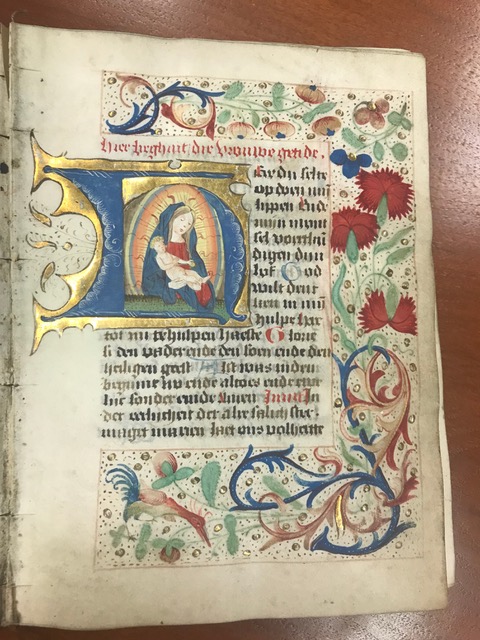 hier beghint die vrouwe getide.
Here du selte
op doen min
lippen Ende
mijn mont
sel voerthi
digen dijn
lof God
wilt denc
ken in mijn
hulpe her
tot mi te hulpen haeste Glorie
si den vader ende den soen ende den
heiligen geest Als was inden
beginne nu ende altoes ende ewe
like sonder eynde Amen In
der eerlicheit der alre salichster
maget marien laet ons